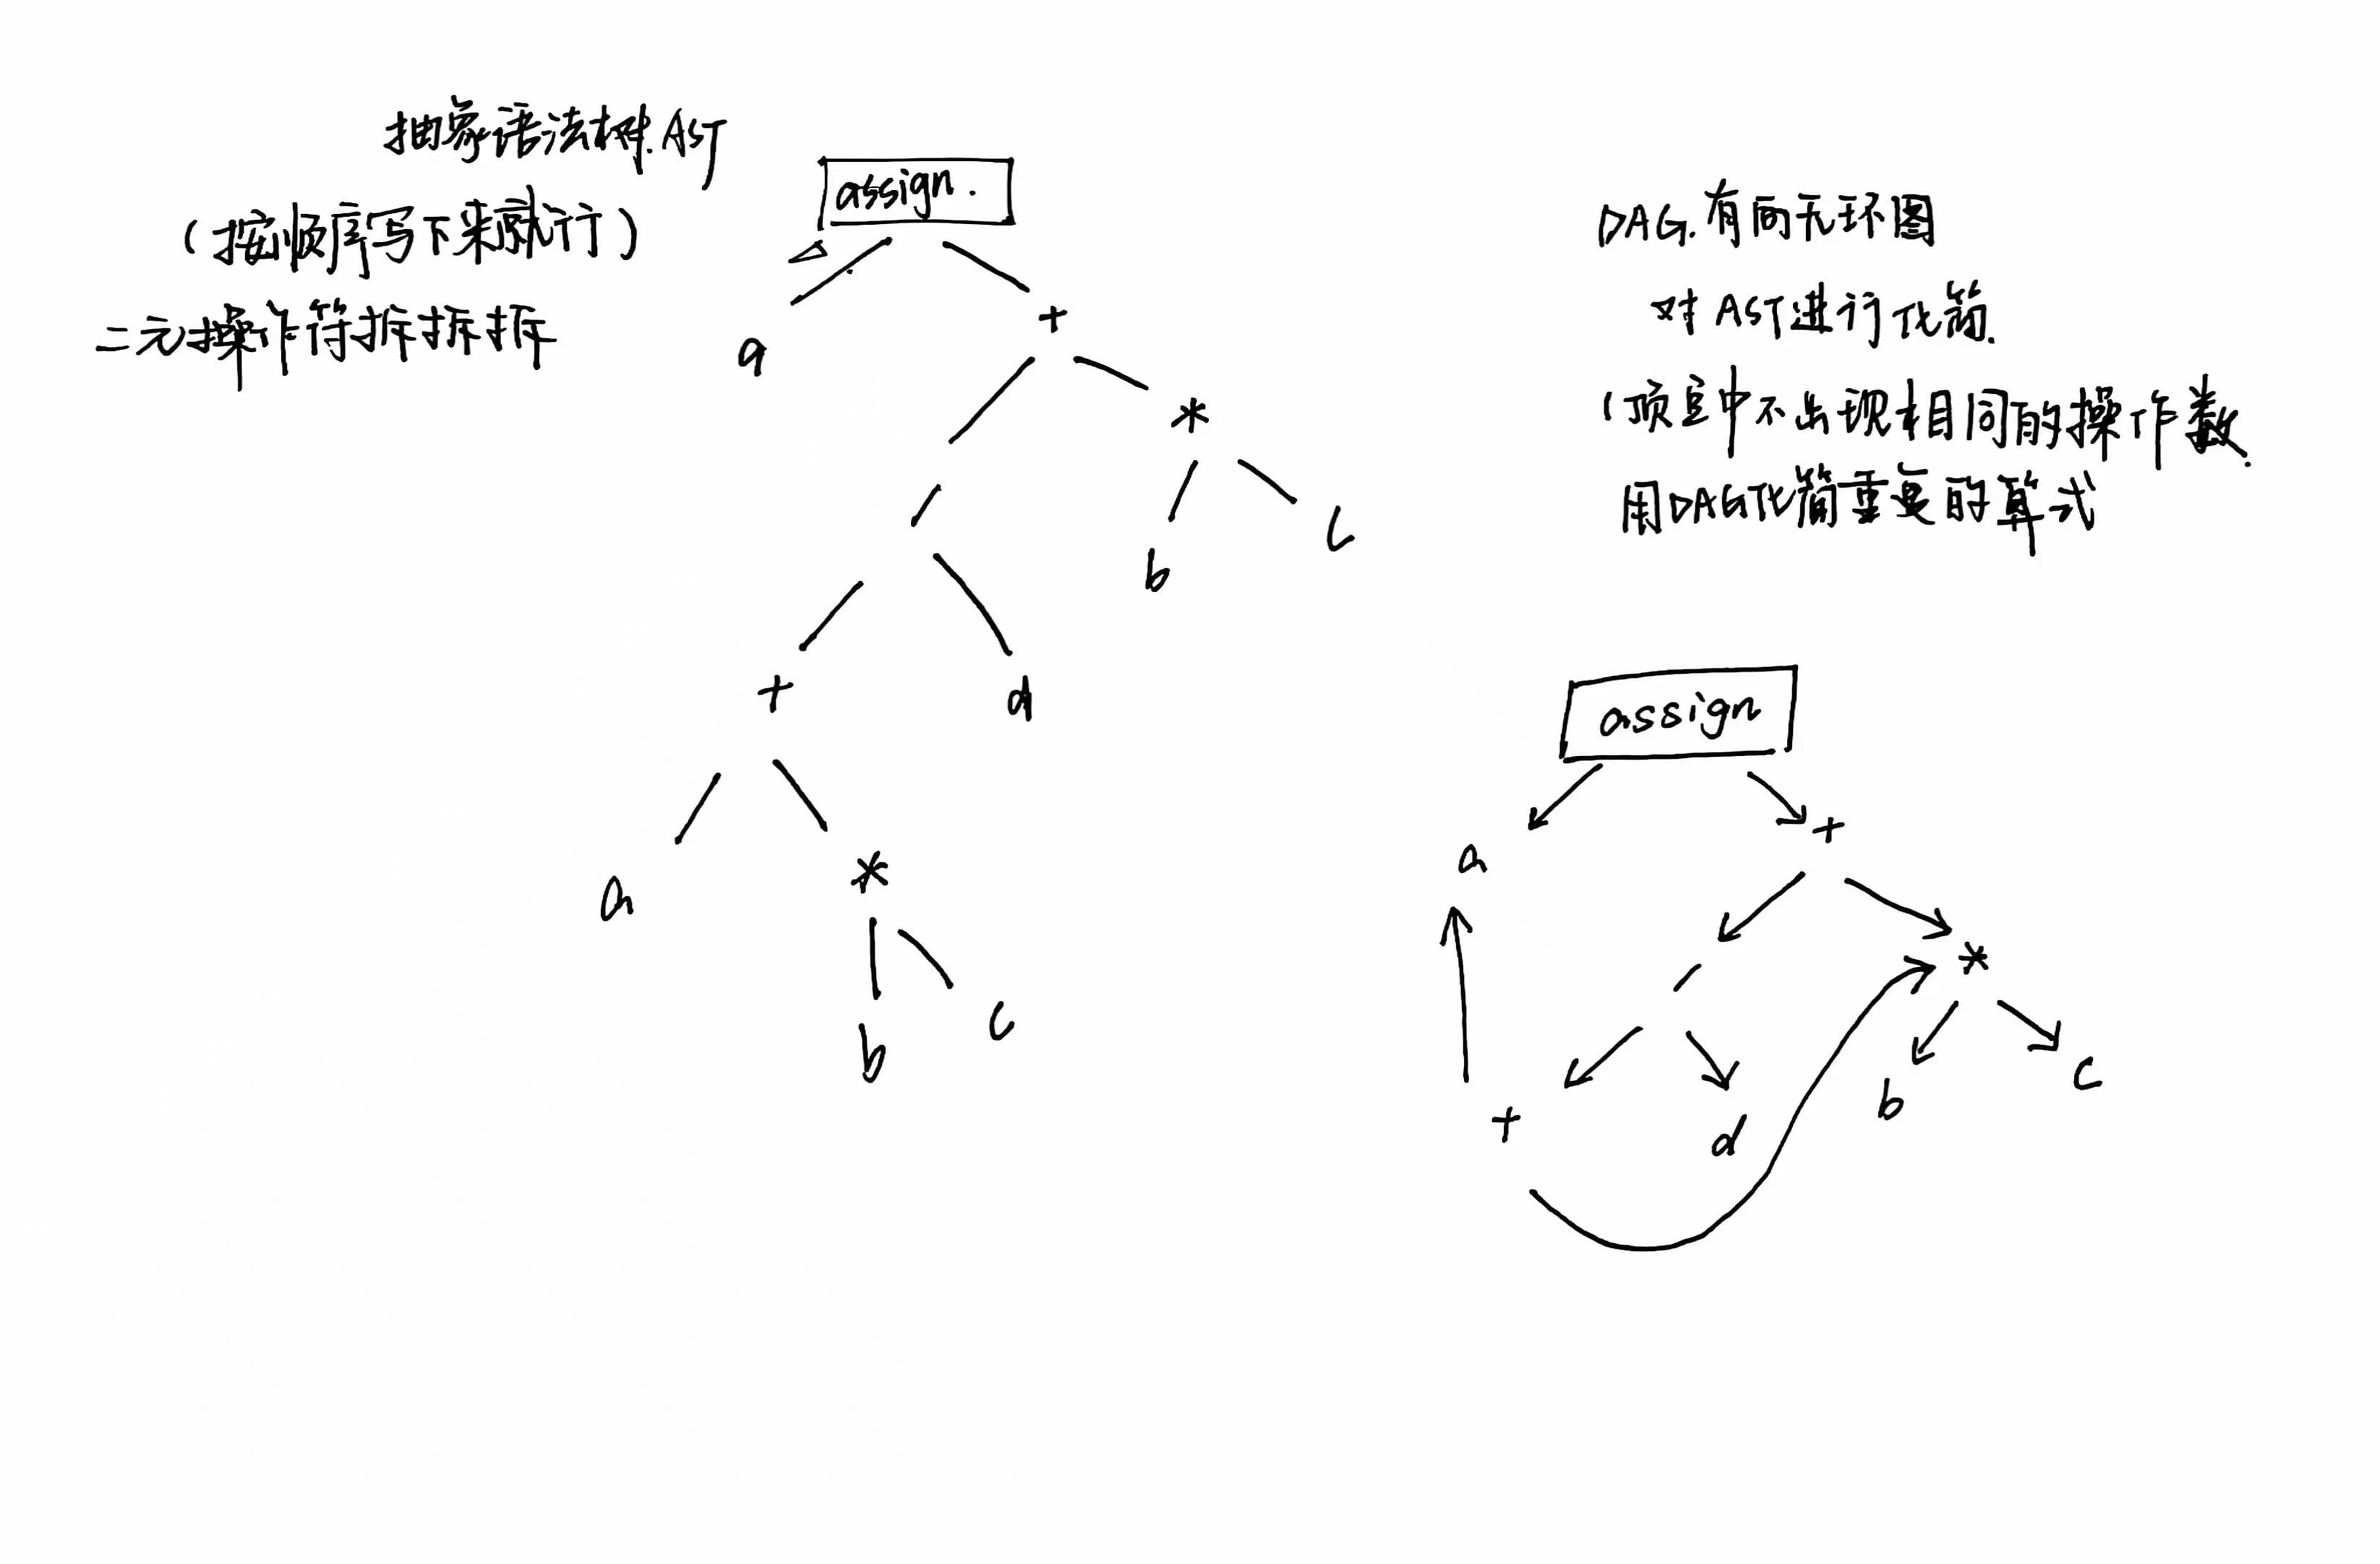 抽象语法树.AST
(按顺序写下来就行)
二元操作符拆拆拆
assign.
a
+
*
/
b
c
+
d
a
*
b
c
DAG.有向无环图
对AST进行化简.
(顶点中不出现相同的操作数.
用DAG化简重复的算式
assign
a
+
*
/
b
c
+
d